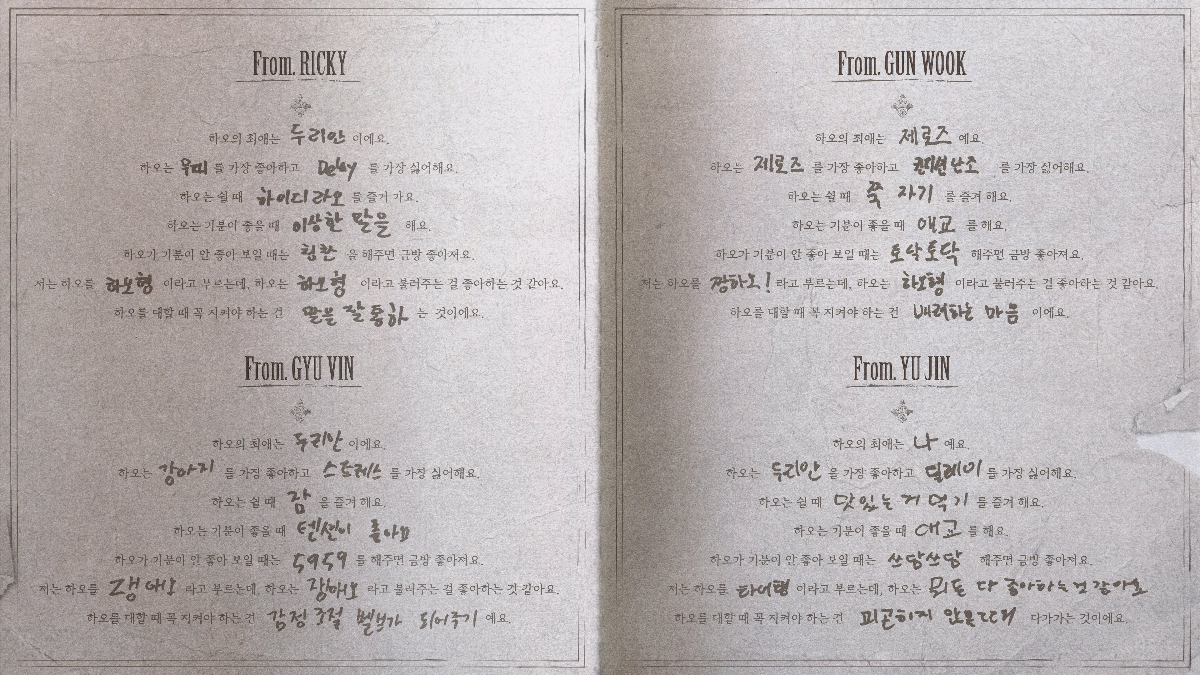 From. RICKY
하오의 최애는 두리안 이에요.
하오는 우띠 를 가장 좋아하고 Delay 를 가장 싫어해요.
하오는 쉴 때 하이디라오 를 즐겨 가요.
하오는 기분이 좋을 때 이상한 말을 해요.
하오가 기분이 안 좋아 보일 때는 칭찬 을 해주면 금방 좋아져요.
저는 하오를 하오형 이라고 부르는데, 하오는 하오형 이라고 불러주는 걸 좋아하는 것 같아요.
하오를 대할 때 꼭 지켜야 하는 건 말을 잘 통하 는 것이에요.
From. GYU VIN
하오의 최애는 두리안 이에요.
하오는 강아지 를 가장 좋아하고 스트레스 를 가장 싫어해요.
하오는 쉴 때 잠 을 즐겨 해요.
하오는 기분이 좋을 때 텐션이 좋아요
하오가 기분이 안 좋아 보일 때는 5959 를 해주면 금방 좋아져요.
저는 하오를 쟝하오 라고 부르는데, 하오는 장하오 라고 불러주는 걸 좋아하는 것 같아요.
하오를 대할 때 꼭 지켜야 하는 건 감정 조절 밸브가 되어주기 예요.
From. GUN WOOK
하오의 최애는 제로즈 예요.
하오는 제로즈 를 가장 좋아하고 컨디션난조 를 가장 싫어해요.
하오는 쉴 때 쭉 자기 를 즐겨 해요.
하오는 기분이 좋을 때 애교 를 해요.
하오가 기분이 안 좋아 보일 때는 토닥토닥 해주면 금방 좋아져요.
저는 하오를 짱하오! 라고 부르는데, 하오는 하오형 이라고 불러주는 걸 좋아하는 것 같아요.
하오를 대할 때 꼭 지켜야 하는 건 배려하는 마음 이에요.
From. YU JIN
하오의 최애는 나 예요.
하오는 두리안 을 가장 좋아하고 딜레이 를 가장 싫어해요.
하오는 쉴 때 맛있는 거 먹기 를 즐겨 해요.
하오는 기분이 좋을 때 애교 를 해요.
하오가 기분이 안 좋아 보일 때는 쓰담쓰담 해주면 금방 좋아져요.
저는 하오를 타어형 이라고 부르는데, 하오는 뭐든 다 좋아하는 것 같아요
하오를 대할 때 꼭 지켜야 하는 건 피곤하지 않을 때 다가가는 것이에요.